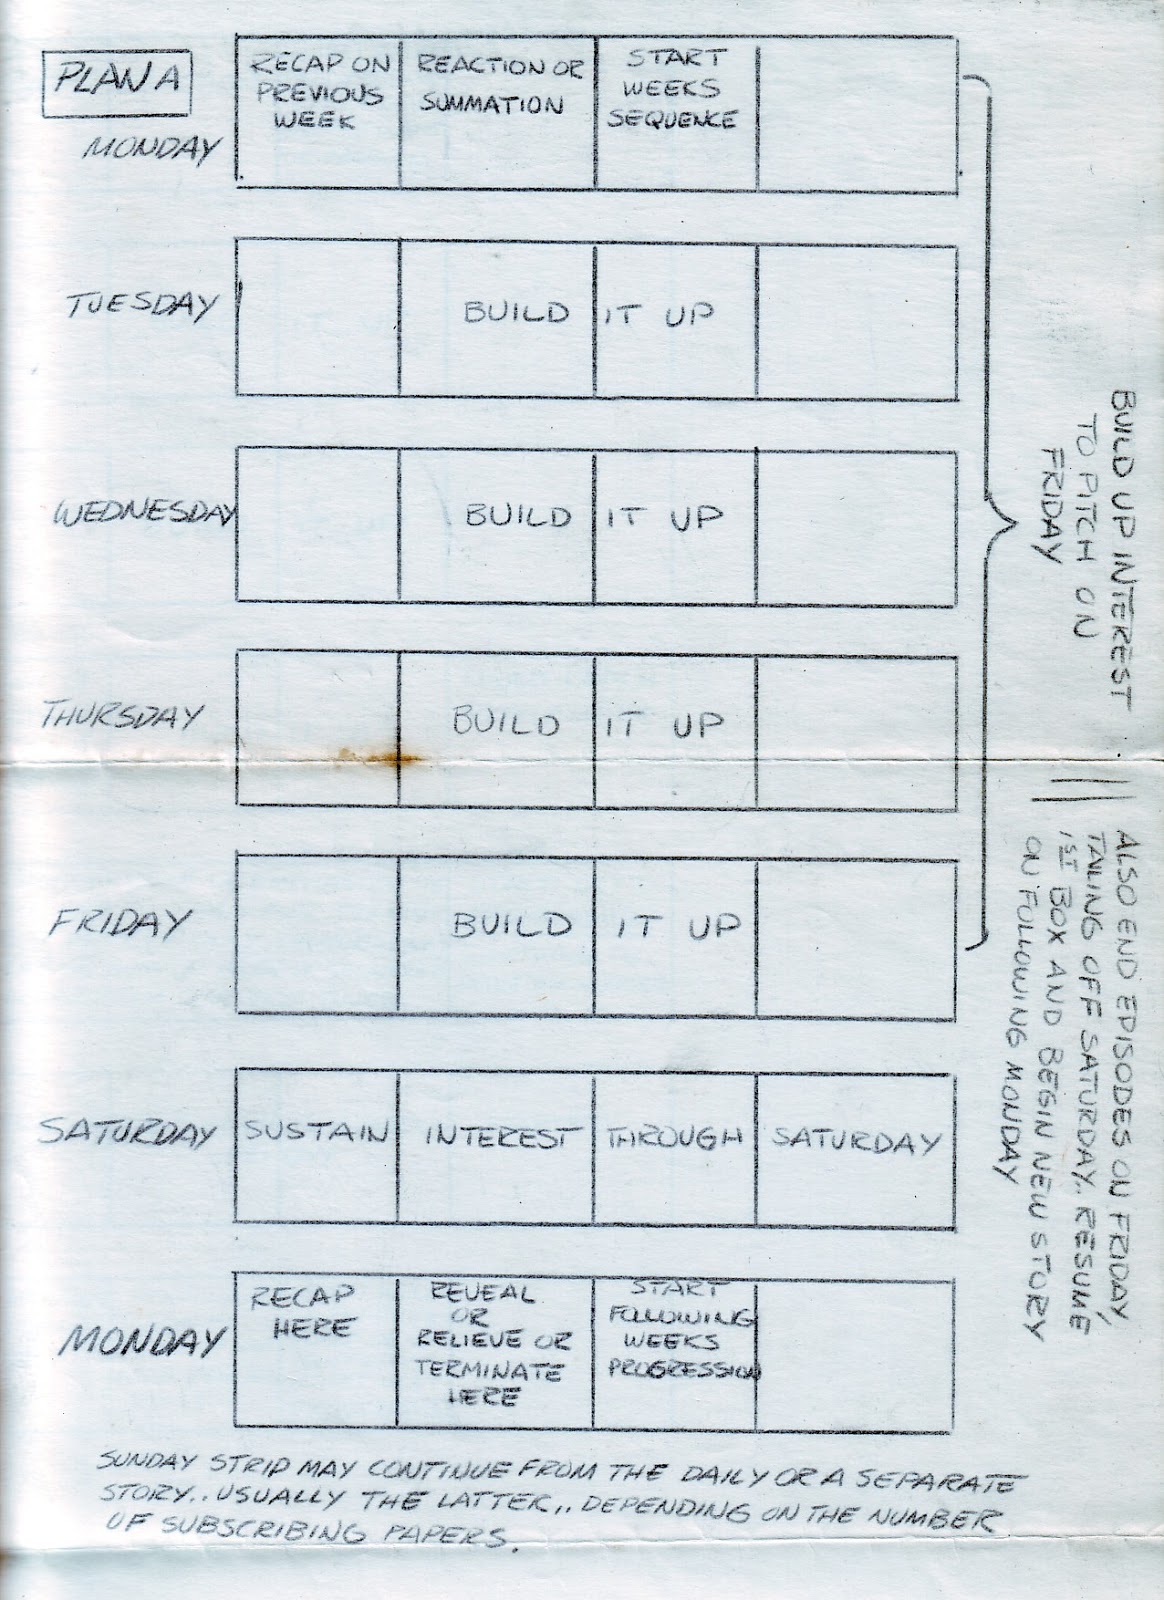 PLAN A
MONDAY
RECAP ON
PREVIOUS
WEEK
REACTION OR
SUMMATION
START
WEEKS
SEQUENCE
TUESDAY
BUILD IT UP
WEDNESDAY
BUILD IT UP
THURSDAY
BUILD IT UP
FRIDAY
BUILD IT UP
SATURDAY
SUSTAIN INTEREST THROUGH SATURDAY
MONDAY
RECAP
HERE
REVEAL
OR
RELIEVE OR
TERMINATE
HERE
START
FOLLOWING
WEEKS
PROGRESSION
BUILD UP INTEREST
TO PITCH ON
FRIDAY
ALSO END EPISODES ON FRIDAY,
TAILING OFF SATURDAY.. RESUME
1ST BOX AND BEGIN NEW STORY
ON FOLLOWING MONDAY
SUNDAY STRIP MAY CONTINUE FROM THE DAILY OR A SEPARATE
STORY.. USUALLY THE LATTER,. DEPENDING ON THE NUMBER
OF SUBSCRIBING PAPERS.